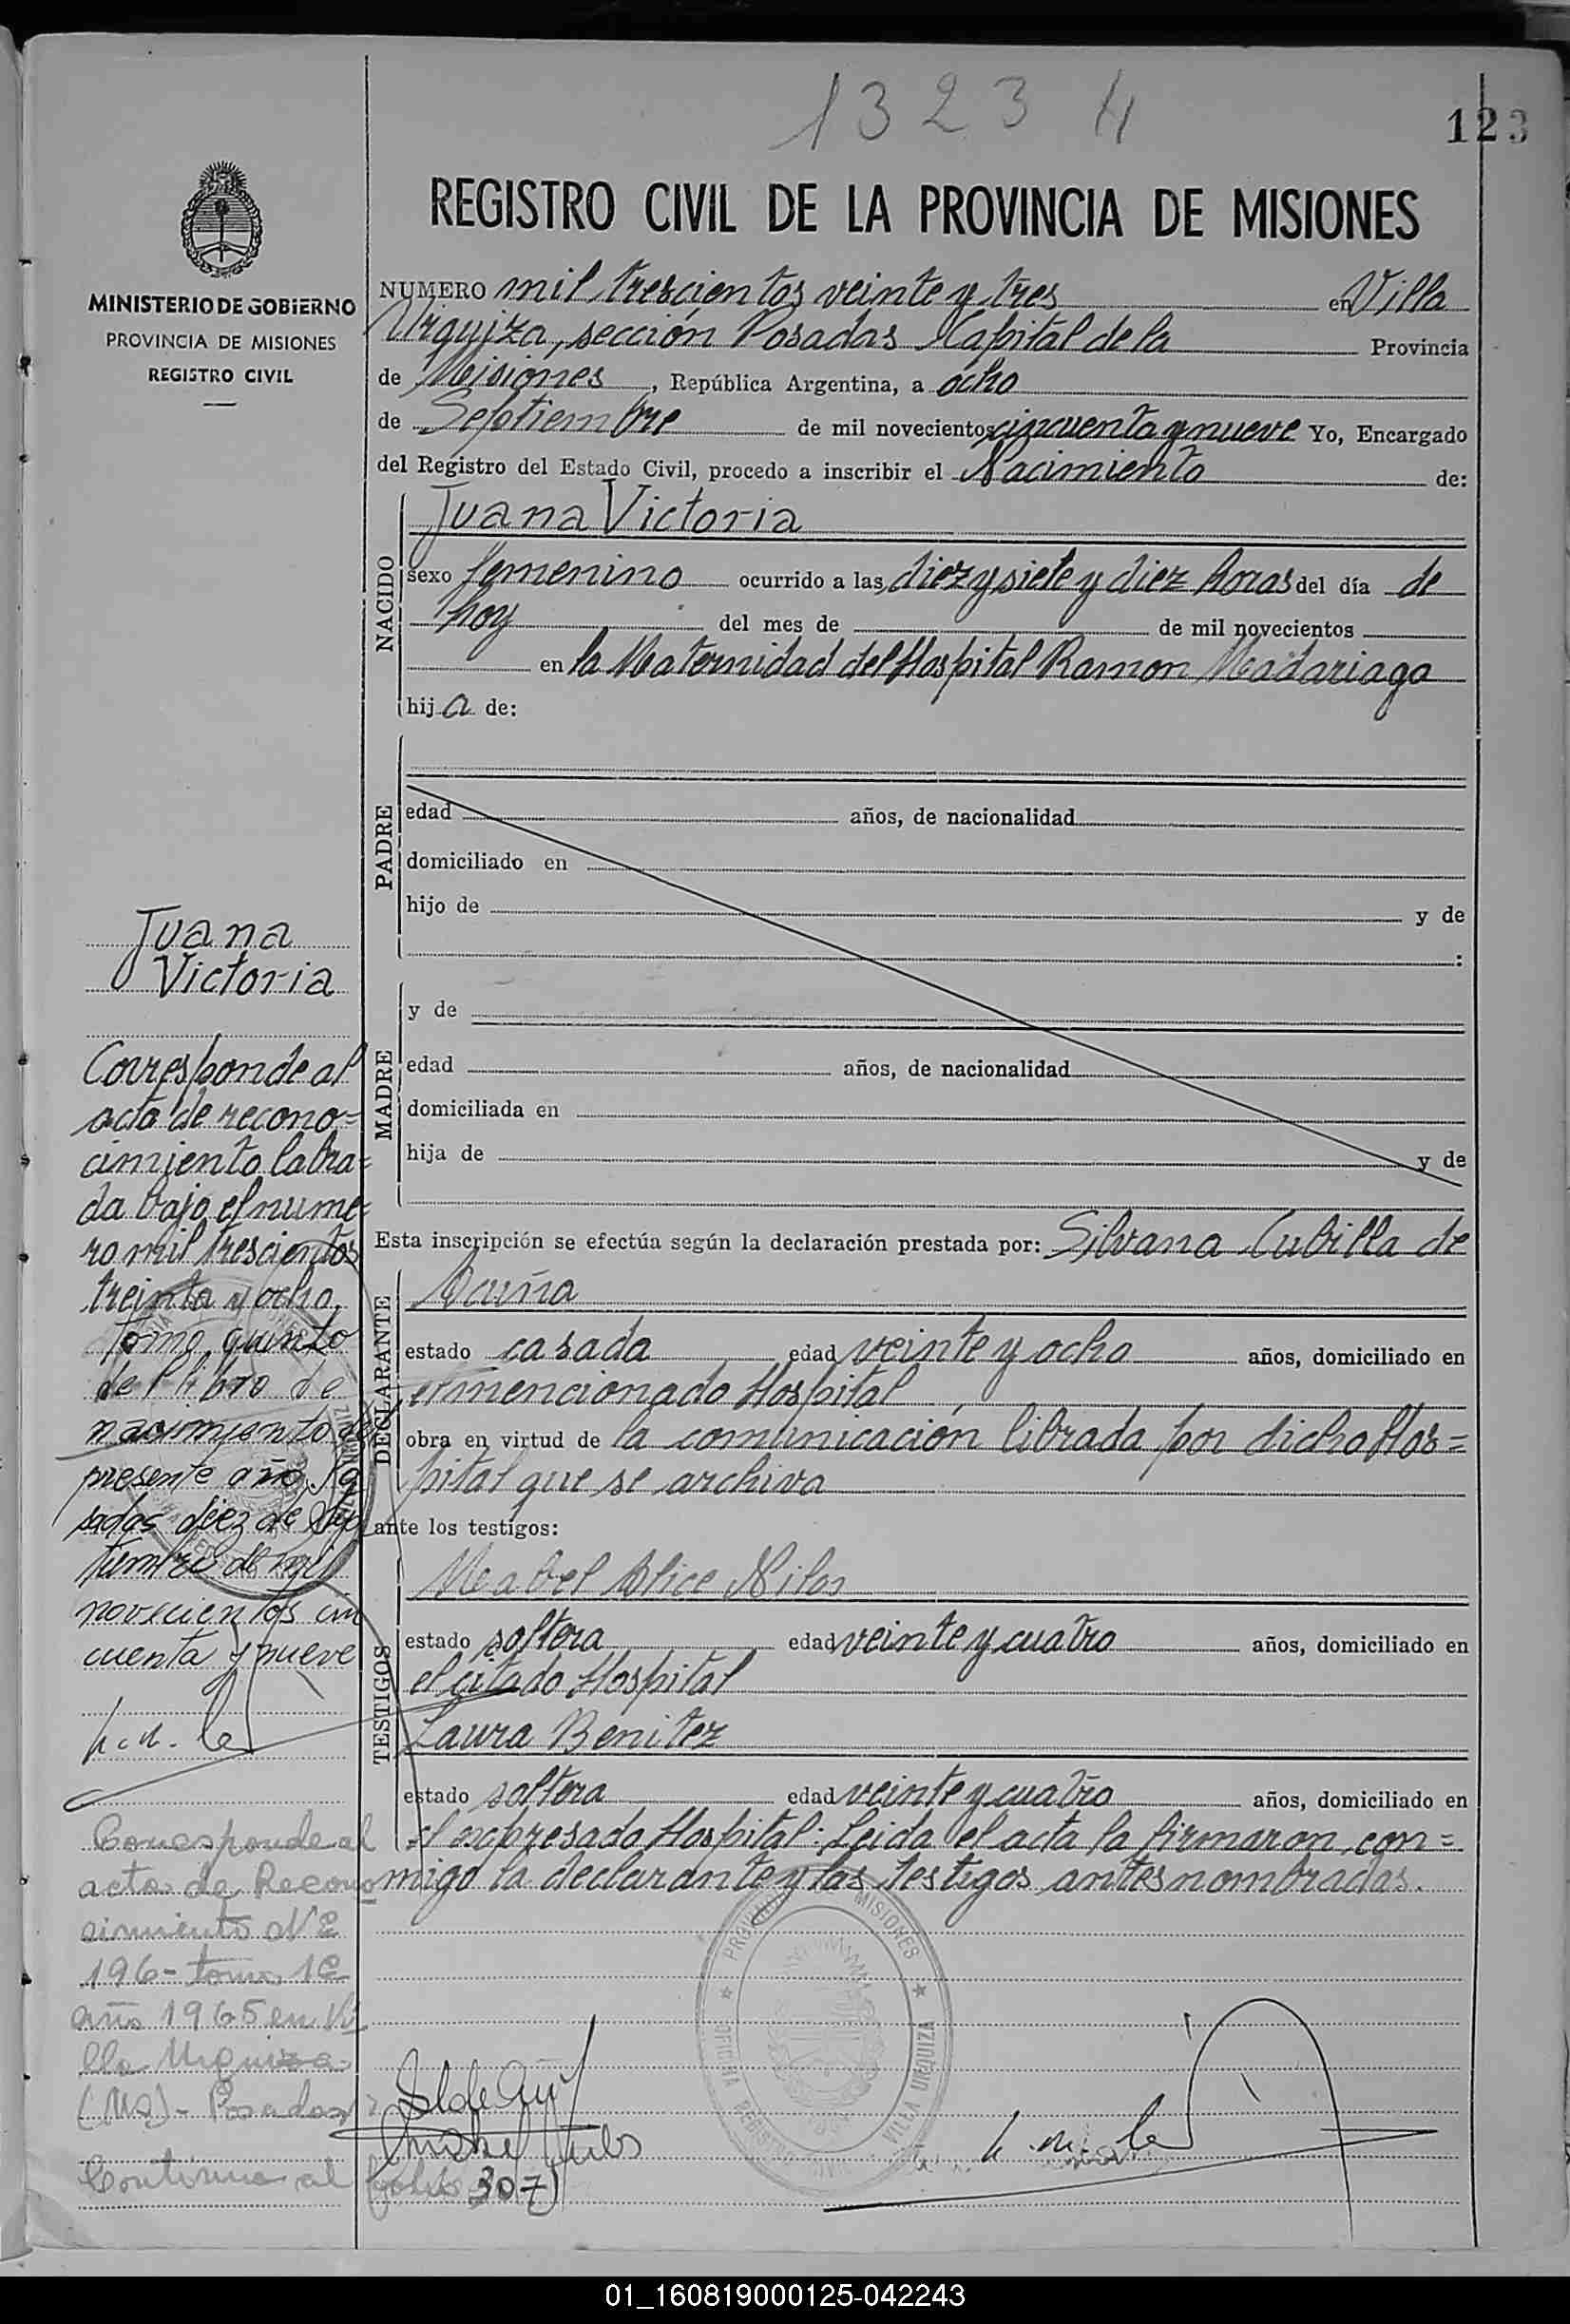 1323 4
123
REGISTRO CIVIL DE LA PROVINCIA DE MISIONES
MINISTERIO DE GOBIERNO
PROVINCIA DE MISIONES
REGISTRO CIVIL
NUMERO mil trescientos veinte y tres en Villa
Urquiza, sección Posadas Capital de la Provincia
de Misiones, República Argentina, a ocho
de Septiembre de mil novecientos cincuenta y nueve Yo, Encargado
del Registro del Estado Civil, procedo a inscribir el Nacimiento de:
NACIDO
Juana Victoria
sexo femenino ocurrido a las diez y siete y diez horas del día de
hoy del mes de de mil novecientos
en la Maternidad del Hospital Ramon Madariaga
hija de:
PADRE
edad años, de nacionalidad
domiciliado en
hijo de y de
:
MADRE
y de
edad años, de nacionalidad
domiciliada en
hija de y de
Esta inscripción se efectúa según la declaración prestada por: Silvana Cubilla de
DECLARANTE
Acuña
estado casada edad veinte y ocho años, domiciliado en
el mencionado Hospital
obra en virtud de la comunicación librada por dicho Hos=
pital que se archiva
ante los testigos:
TESTIGOS
Mabel Alice Nilos
estado soltera edad veinte y cuatro años, domiciliado en
el citado Hospital
Laura Benitez
estado soltera edad veinte y cuatro años, domiciliado en
el expresado Hospital. Leida el acta la firmaron con=
migo la declarante y las testigos antes nombradas.
Juana
Victoria
Corresponde al
acta de recono=
cimiento labra=
da bajo el nume=
ro mil trescientos
treinta y ocho,
Tomo quinto
del libro de
nacimiento del
presente año, Po
sadas diez de Sep
tiembre de mil
novecientos cin
cuenta y nueve
Corresponde al
acta de Recono
cimiento Nº
196 - tomo 1º
año 1965 en Vi
lla Urquiza
(Ms) - Posadas
Continua al folio 307)
PROVINCIA MISIONES
OFICINA REGISTRO CIVIL VILLA URQUIZA
01_160819000125-042243